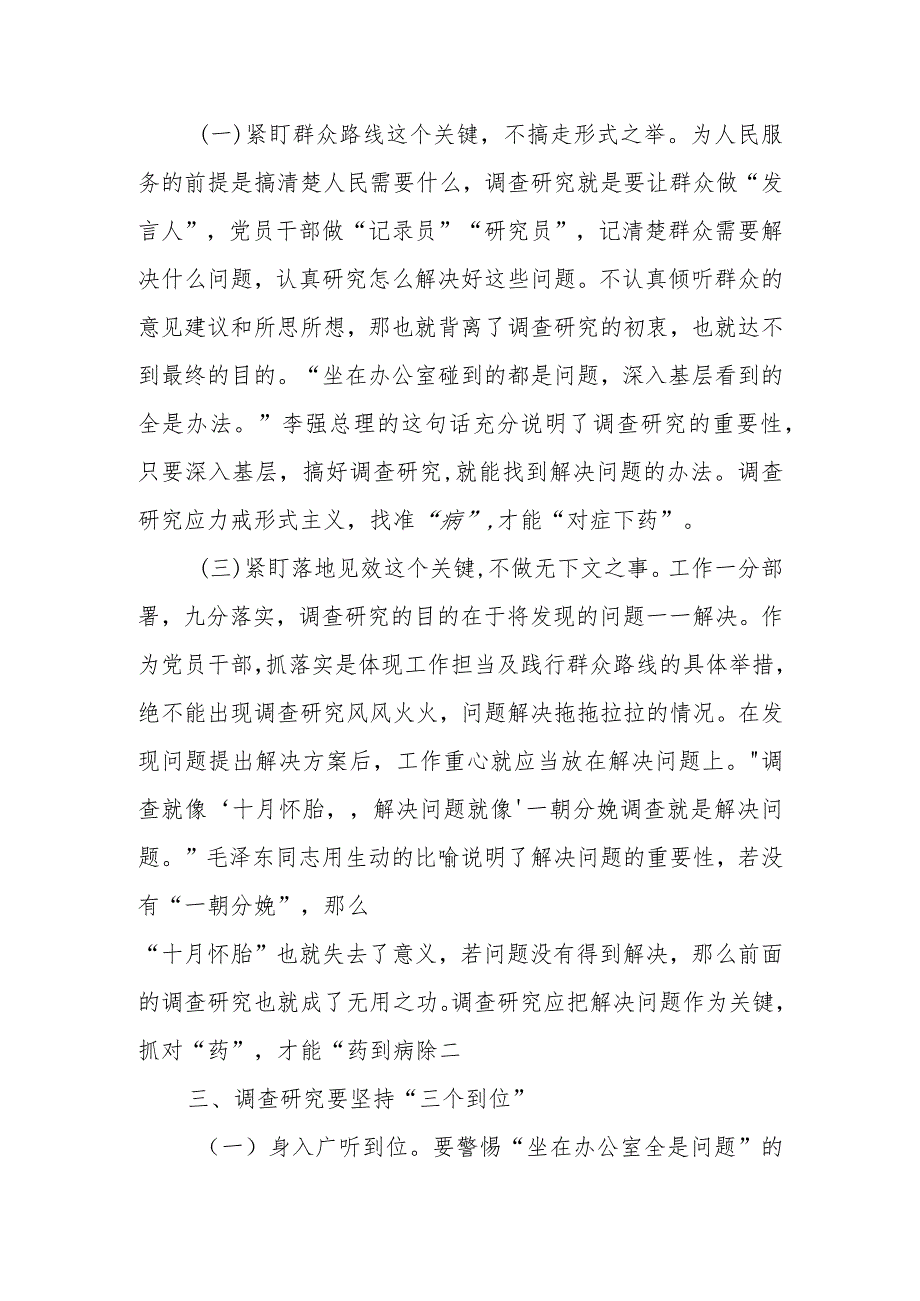 (一)紧盯群众路线这个关键，不搞走形式之举。为人民服
务的前提是搞清楚人民需要什么，调查研究就是要让群众做“发
言人”，党员干部做“记录员”“研究员”，记清楚群众需要解
决什么问题，认真研究怎么解决好这些问题。不认真倾听群众的
意见建议和所思所想，那也就背离了调查研究的初衷，也就达不
到最终的目的。“坐在办公室碰到的都是问题，深入基层看到的
全是办法。”李强总理的这句话充分说明了调查研究的重要性，
只要深入基层，搞好调查研究,就能找到解决问题的办法。调查
研究应力戒形式主义，找准“病”,才能“对症下药”。
(三)紧盯落地见效这个关键,不做无下文之事。工作一分部
署，九分落实，调查研究的目的在于将发现的问题一一解决。作
为党员干部,抓落实是体现工作担当及践行群众路线的具体举措，
绝不能出现调查研究风风火火，问题解决拖拖拉拉的情况。在发
现问题提出解决方案后，工作重心就应当放在解决问题上。"调
查就像‘十月怀胎，，解决问题就像'一朝分娩调查就是解决问
题。”毛泽东同志用生动的比喻说明了解决问题的重要性，若没
有“一朝分娩”，那么
“十月怀胎”也就失去了意义，若问题没有得到解决，那么前面
的调查研究也就成了无用之功。调查研究应把解决问题作为关键，
抓对“药”，才能“药到病除二
三、调查研究要坚持“三个到位”
（一）身入广听到位。要警惕“坐在办公室全是问题”的